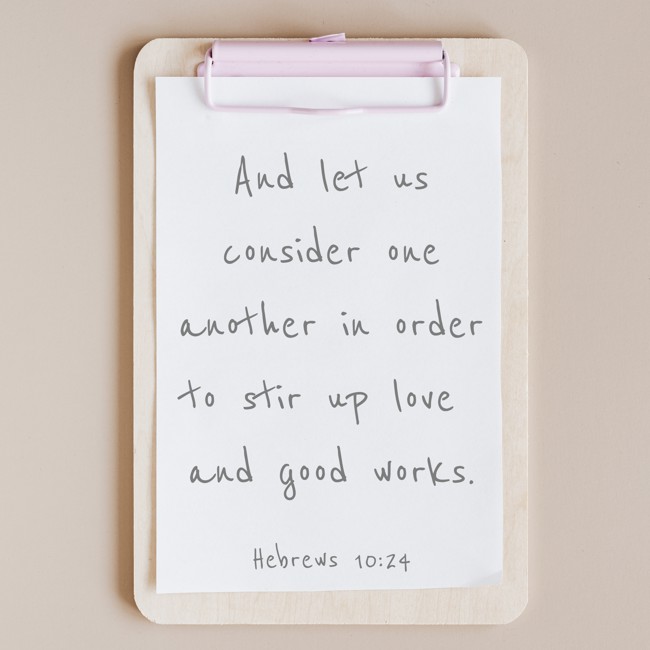 And let us
consider one
another in order
to stir up love
and good works.
Hebrews 10:24